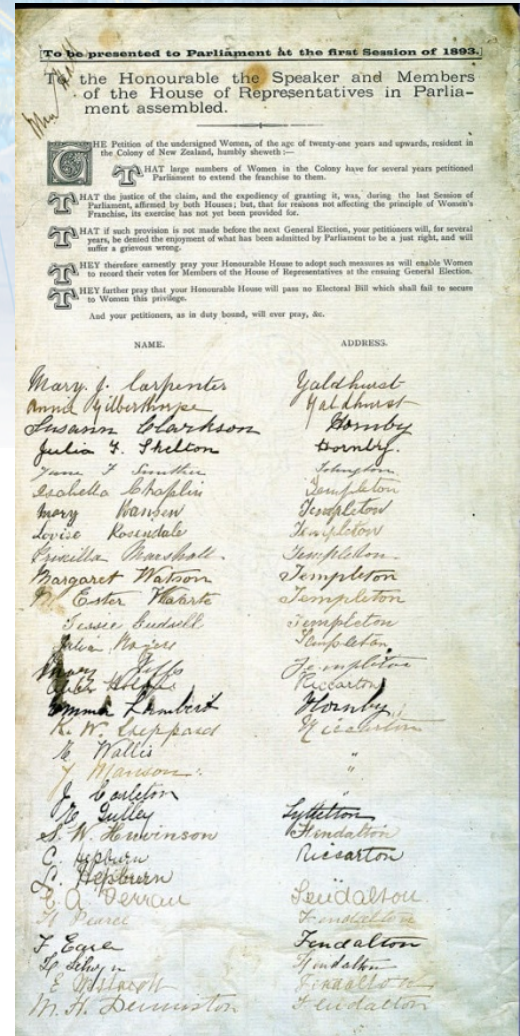 [To be presented to Parliament at the first Session of 1893.]
To the Honourable the Speaker and Members
of the House of Representatives in Parlia-
ment assembled.
THE Petition of the undersigned Women, of the age of twenty-one years and upwards, resident in
the Colony of New Zealand, humbly sheweth :—
THAT large numbers of Women in the Colony have for several years petitioned
Parliament to extend the franchise to them.
THAT the justice of the claim, and the expediency of granting it, was, during the last Session of
Parliament, affirmed by both Houses; but, that for reasons not affecting the principle of Women's
Franchise, its exercise has not yet been provided for.
THAT if such provision is not made before the next General Election, your petitioners will, for several
years, be denied the enjoyment of what has been admitted by Parliament to be a just right, and will
suffer a grievous wrong.
THEY therefore earnestly pray your Honourable House to adopt such measures as will enable Women
to record their votes for Members of the House of Representatives at the ensuing General Election.
THEY further pray that your Honourable House will pass no Electoral Bill which shall fail to secure
to Women this privilege.
And your petitioners, as in duty bound, will ever pray, &c.
NAME. ADDRESS.
Mary. J. Carpenter Yaldhurst
Annie Gilberthorpe Yaldhurst
Susann Clarkson Hornby
Julia F. Skelton Hornby.
Jane
Isabella Chaplin Templeton
Mary Hansen Templeton
Louise Rosendale Templeton
Priscilla Marshall Templeton
Margaret Watson Templeton
M Ester Templeton
Jessie Templeton
Templeton
Mary Templeton
Riccarton
Emma Lambert Hornby
K. W. Sheppard Riccarton
E Wallis "
Manson "
J. Carleton "
E Gulley Lyttelton
S. W. Fendalton
C. Hepburn Riccarton
L. Hepburn
E. A. Ferrau Fendalton.
Pearce Fendalton
F Eare Fendalton
Selwyn Fendalton
E Fendalton
M. H. Denniston Fendalton